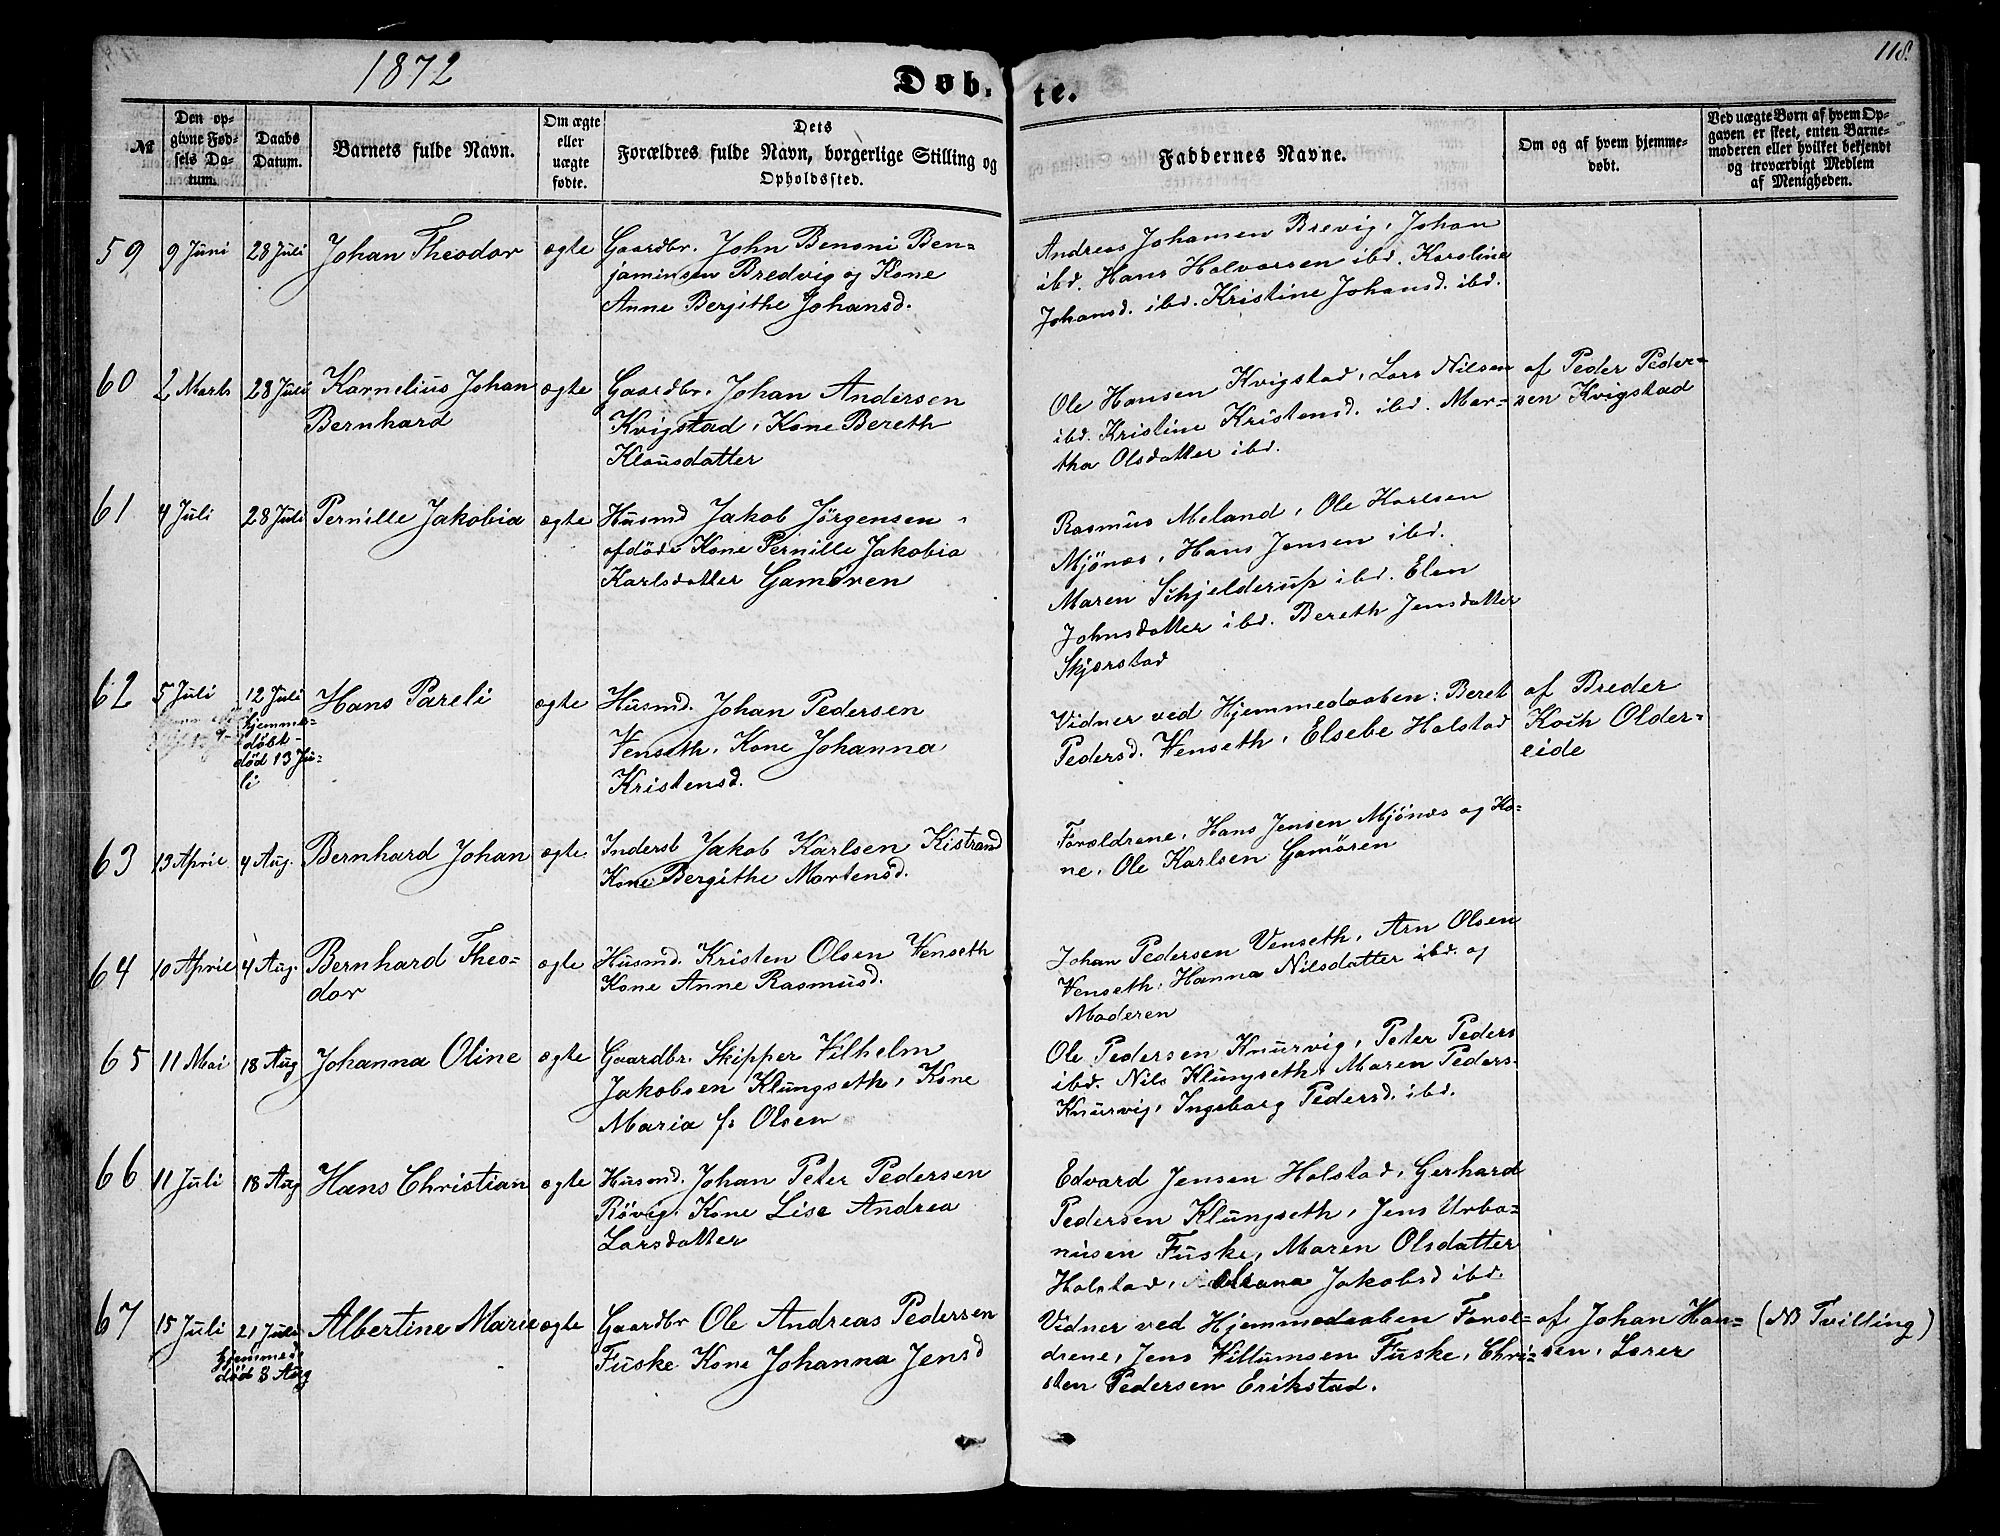 118.
1872
Døb-
te.
№
Den op-
givne Fød-
sels Da-
tum.
Daabs
Datum.
Barnets fulde Navn.
Om ægte
eller
uægte
fødte.
Dets
Forældres fulde Navn, borgerlige Stilling og
Opholdssted.
Faddernes Navne.
Om og af hvem hjemme-
døbt.
Ved uægte Børn af hvem Op-
gaven er skeet, enten Barne-
moderen eller hvilket bekjendt
og troværdigt Medlem
af Menigheden.
59
9 Juni
28 Juli
Johan Theodor
ægte
Gaardbr. John Benoni Ben=
jaminsen Bredvig og Kone
Anne Bergithe Johansd.
Andreas Johansen Brevig, Johan
ibd. Hans Halvorsen ibd. Karoline
Johansd. ibd. Kristine Johansd. ibd.
60
2 Marts
28 Juli
Kornelius Johan
Bernhard
ægte
Gaardbr. Johan Andersen
Kvigstad, Kone Bereth
Klausdatter
Ole Hansen Kvigstad, Lars Nilsen
ibd. Kristine Kristensd. ibd. Mar=
tha Olsdatter ibd.
af Peder Peder=
sen Kvigstad
61
4 Juli
28 Juli
Pernille Jakobia
ægte
Husmd Jakob Jørgensen
afdøde Kone Pernille Jakobia
Karlsdatter Gamøren
Rasmus Meland, Ole Karlsen
Mjønæs, Hans Jensen ibd.
Maren Schjelderup ibd. Elen
Johnsdatter ibd. Bereth Jensdatter
Skjerstad
62
5 Juli
12 Juli
hjemme-
døbt-
død 13 Ju-
li
Hans Pareli
ægte
Husmd. Johan Pedersen
Venseth, Kone Johanna
Kristensd.
Vidner ved Hjemmedaaben: Beret
Pedersd. Venseth, Elsebe Halstad
af Breder
Koch Older=
eide
63
13 April
4 Aug.
Bernhard Johan
ægte
Inderst Jakob Karlsen Kistrand
Kone Bergithe Mortensd.
Forældrene, Hans Jensen Mjønæs og Ko=
ne, Ole Karlsen Gamøren
64
10 April
4 Aug.
Bernhard Theo-
dor
ægte
Husmd. Kristen Olsen Venseth
Kone Anne Rasmusd.
Johan Pedersen Venseth, Arn Olsen
Venseth, Hanna Nilsdatter ibd. og
Moderen
65
11 Mai
18 Aug
Johanna Oline
ægte
Gaardbr. Skipper Vilhelm
Jakobsen Klungseth, Kone
Maria f. Olsen
Ole Pedersen Knurvig, Peter Peders
ibd. Nils Klungseth, Maren Peders.
Knurvig, Ingeborg Pedersd. ibd.
66
11 Juli
18 Aug
Hans Christian
ægte
Husmd. Johan Peter Pedersen
Røvig. Kone Lise Andrea
Larsdatter
Edvard Jensen Halstad, Gerhard
Pedersen Klungseth, Jens Urba=
nusen Fuske, Maren Olsdatter
Halstad, Jakobsd ibd.
67
15 Juli
21 Juli
hjemmed.
død 3 Aug
Albertine Marie
ægte
Gaardbr Ole Andreas Pedersen
Fuske Kone Johanna Jensd
Vidner ved Hjemmedaaben Foræl=
drene, Jens Villumsen Fuske, Chri=
sten Pedersen Erikstad.
af Johan Han=
sen, Lærer
(NB Tvilling)